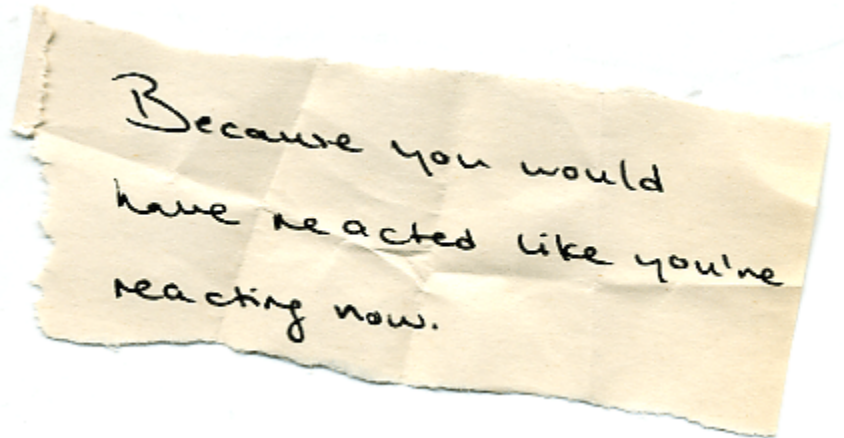 Because you would
have reacted like you're
reacting now.